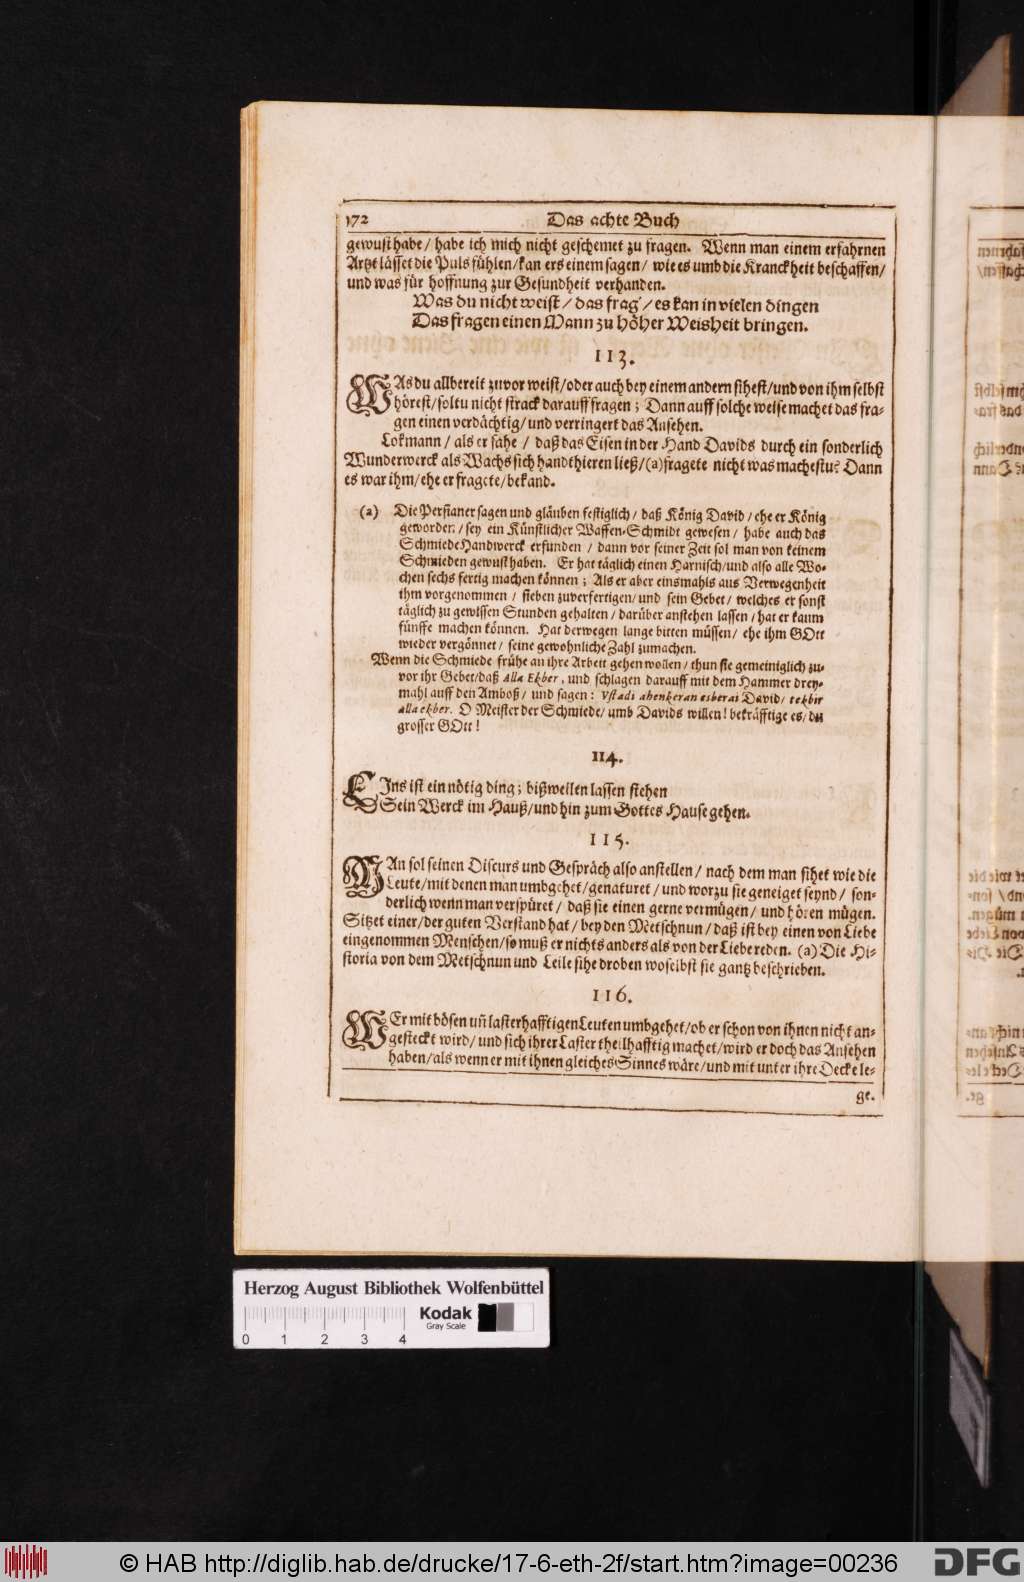 172 Das achte Buch
gewust habe / habe ich mich nicht geschemet zu fragen. Wenn man einem erfahrnen
Artzt lässet die Puls fühlen / kan ers einem sagen / wie es umb die Kranckheit beschaffen /
und was für hoffnung zur Gesundheit verhanden.
Was du nicht weist / das frag / es kan in vielen dingen
Das fragen einen Mann zu höher Weisheit bringen.
113.
WAs du allbereit zuvor weist / oder auch bey einem andern sihest / und von ihm selbst
hörest / soltu nicht strack darauff fragen ; Dann auff solche weise machet das fra-
gen einen verdächtig / und verringert das Ansehen.
Lokmann / als er sahe / daß das Eisen in der Hand Davids durch ein sonderlich
Wunderwerck als Wachs sich handthieren ließ / (a) fragete nicht was machestu? Dann
es war ihm / ehe er fragete / bekand.
(a) Die Persianer sagen und gläuben festiglich / daß König David / ehe er König
geworden / sey ein Künstlicher Waffen-Schmidt gewesen / habe auch das
Schmiede Handwerck erfunden / dann vor seiner Zeit sol man von keinem
Schmieden gewust haben. Er hat täglich einen Harnisch / und also alle Wo-
chen sechs fertig machen können ; Als er aber einsmahls aus Verwegenheit
ihm vorgenommen / sieben zuverfertigen / und sein Gebet / welches er sonst
täglich zu gewissen Stunden gehalten / darüber anstehen lassen / hat er kaum
fünffe machen können. Hat derwegen lange bitten müssen / ehe ihm GOtt
wieder vergönnet / seine gewohnliche Zahl zumachen.
Wenn die Schmiede frühe an ihre Arbeit gehen wollen / thun sie gemeiniglich zu-
vor ihr Gebet / daß Alla Ekber, und schlagen darauff mit dem Hammer drey-
mahl auff den Amboß / und sagen : Vstadi ahenkeran esberai David / tekbir
alla ekber. O Meister der Schmiede / umb Davids willen ! bekräfftige es / du
grosser GOtt !
114.
EIns ist ein nötig ding ; bißweilen lassen stehen
Sein Werck im Hauß / und hin zum Gottes Hause gehen.
115.
MAn sol seinen Discurs und Gespräch also anstellen / nach dem man sihet wie die
Leute / mit denen man umbgehet / genaturet / und worzu sie geneiget seynd / son-
derlich wenn man verspüret / daß sie einen gerne vermügen / und hören mügen.
Sitzet einer / der guten Verstand hat / bey den Metschnun / daß ist bey einen von Liebe
eingenommen Menschen / so muß er nichts anders als von der Liebe reden. (a) Die Hi-
storia von dem Metschnun und Leile sihe droben woselbst sie gantz beschrieben.
116.
WEr mit bösen uñ lasterhafftigen Leuten umbgehet / ob er schon von ihnen nicht an-
gesteckt wird / und sich ihrer Laster theilhafftig machet / wird er doch das Ansehen
haben / als wenn er mit ihnen gleiches Sinnes wäre / und mit unter ihre Decke le-
ge.
Herzog August Bibliothek Wolfenbüttel
Kodak
Gray Scale
0 1 2 3 4
© HAB http://diglib.hab.de/drucke/17-6-eth-2f/start.htm?image=00236
DFG